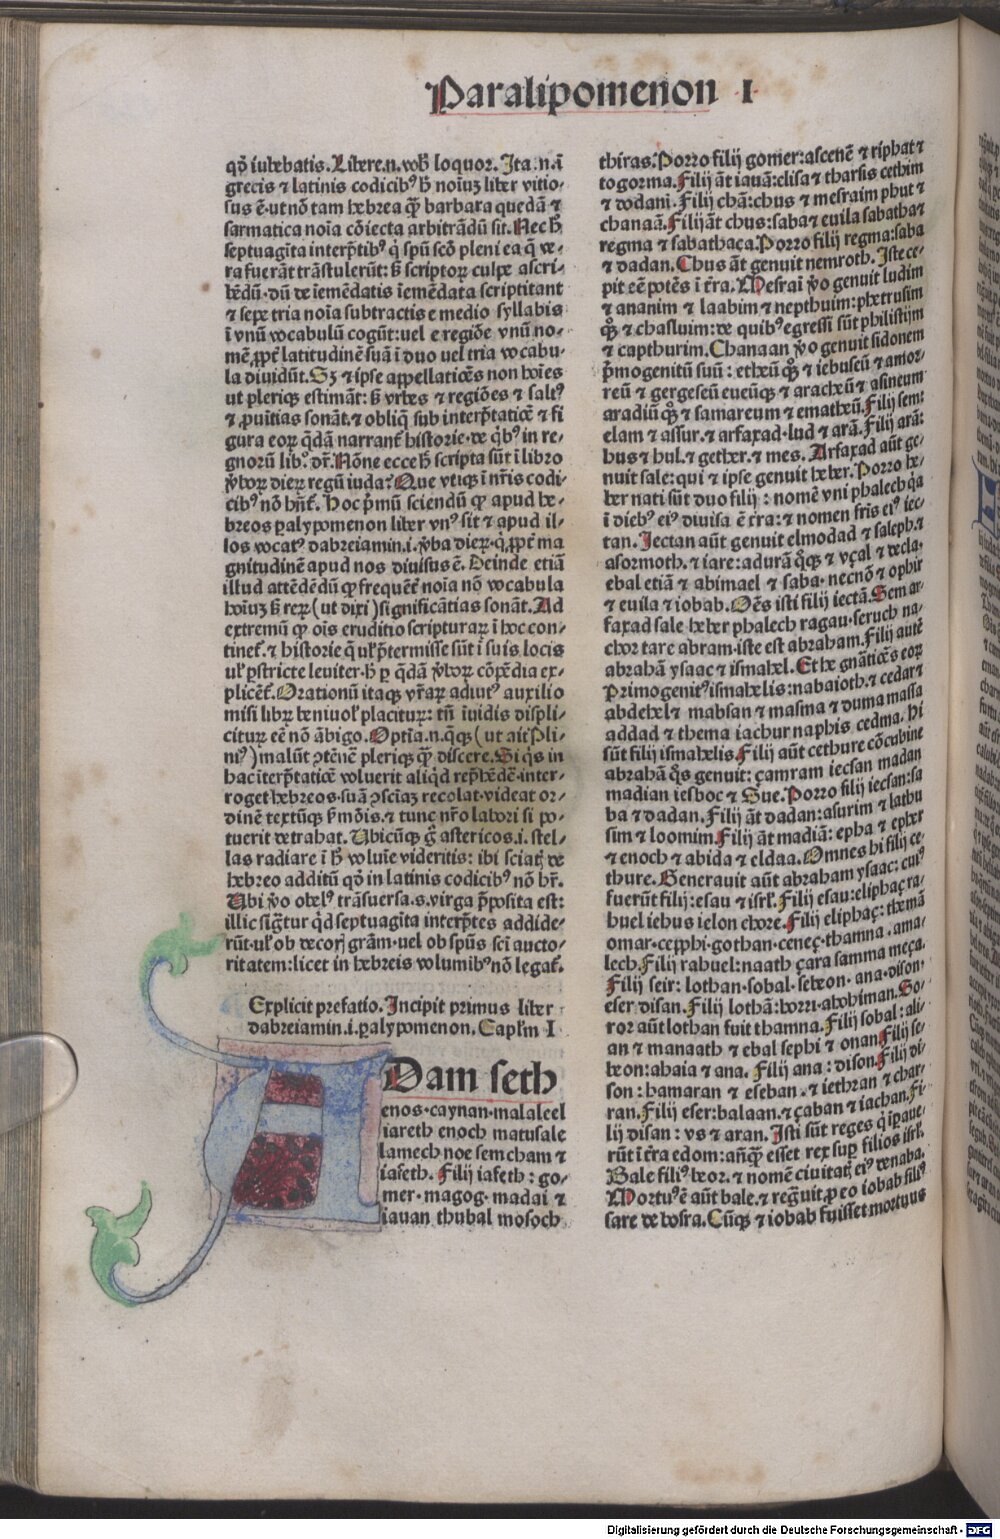 Paralipomenon I
qd̓ iubebatis. Libere.n.vob̓ loquor. Ita.n.ī
grecis ⁊ latinis codicibꝰ h̓ noīuꝫ liber vitio-
sus ē.ut nō tam hebrea qꝫ barbara quedā ⁊
sarmatica noīa cōiecta arbitrādū sit. Nec h̓
septuagīta interp̄tibꝰ q̓ spū scō pleni ea q̄ ve-
ra fuerāt trāstulerūt: s̓ scriptoꝝ culpe ascri-
bēdū.dū de iemēdatis īemēdata scriptitant
⁊ sepe tria noīa subtractis e medio syllabis
ī vnū vocabulū cogūt:uel e regiōe vnū no-
mē ꝓpt̓ latitudinē suā ī duo uel tria vocabu-
la diuidūt. Sꝫ ⁊ ipse appellatiōes non hoīes
ut pleriqꝫ estimāt: s̓ vrbes ⁊ regiōes ⁊ saltꝰ
⁊ ꝓuītias sonāt.⁊ obliq̓ sub interp̄tatiōe ⁊ fi
gura eoꝝ q̓dā narrant̓ historie.de q̓bꝰ in re-
gnorū lib̓.dr̄. Nōne ecce h̓ scripta sūt ī libro
v̓boꝝ dieꝝ regū iuda? Que vtiqꝫ ī nr̄is codi-
cibꝰ nō hn̄t̓. Hoc p̄mū sciendū ꝙ apud he-
breos paralypomenon liber vnꝰ sit ⁊ apud il-
los vocatꝰ dabreiamin.i.v̓ba dieꝝ.q̓ ꝓpt̓ ma
gnitudinē apud nos diuisus ē. Deinde etiā
illud attēdēdū ꝙ frequēt̓ noīa nō vocabula
hoīuꝫ s̓ reꝝ (ut dixi) significātias sonāt. Ad
extremū ꝙ oīs eruditio scripturaꝝ ī hoc con-
tinet̓.⁊ historie q̄ ul̓ p̄termisse sūt ī suis locis
ul̓ p̄stricte leuiter.h̓ p q̓dā v̓boꝝ cōpēdia ex-
plicēt̓. Orationū itaqꝫ vr̄aꝝ adiutꝰ auxilio
misi libꝝ beniuol̓ placituꝝ: tn̄ īuidis displi-
cituꝝ eē nō ābigo. Optīa.n.q̄qꝫ (ut ait Pli-
niꝰ) malūt ꝯtēnē pleriqꝫ qꝫ discere. Si q̓s in
hac īterp̄tatiōe voluerit aliq̓d rep̄hēdē.inter-
roget hebreos.suā ꝯsciaꝫ recolat.videat or-
dinē textūqꝫ s̓mōis.⁊ tunc nr̄o labori si po-
tuerit detrahat. Ubicūqꝫ g̓ astericos.i.stel-
las radiare ī h̓ voluīe videritis: ibi sciatꝭ de
hebreo additū qd̓ in latinis codicibꝰ nō hr̄.
Ubi v̓o obelꝰ trāsuersa.s.virga p̄posita est:
illic sigt̄ur q̓d septuagīta interp̄tes addide-
rūt.ul̓ ob decorꝭ grām.uel ob spūs sci aucto-
ritatem:licet in hebreis volumibꝰ nō legat̓.
Explicit prefatio. Incipit primus liber
dabreiamin.i.paralypomenon. Caplm̄ I
ADam seth
enos.caynan.malaleel
iareth enoch matusale
lamech noe sem cham ⁊
iafeth. Filij iafeth: go-
mer.magog.madai ⁊
iauan thubal mosoch
thiras. Porro filij gomer:ascenē ⁊ riphat ⁊
togorma. Filij āt iauā:elisa ⁊ tharsis cethim
⁊ dodani. Filij chā:chus ⁊ mesraim phut ⁊
chanaā. Filij āt chus:saba ⁊ euila sabatha ⁊
regma ⁊ sabathaca. Porro filij regma:saba
⁊ dadan. Chus āt genuit nemroth. Iste ce-
pit eē potēs ī t̓ra. Mesraī v̓o genuit ludim
⁊ ananim ⁊ laabim ⁊ nepthuim: phetrusim
qꝫ ⁊ chasluim:de quibꝰ egressi sūt philistijm
⁊ capthurim. Chanaan v̓o genuit sidonem
p̄mogenitū suū: etheū qꝫ ⁊ iebuseū ⁊ amor-
reū ⁊ gergeseū eueūqꝫ ⁊ aracheū ⁊ asineum
aradiū qꝫ ⁊ samareum ⁊ ematheū. Filij sem:
elam ⁊ assur.⁊ arfaxad.lud ⁊ arā. Filij arā:
hus ⁊ hul.⁊ gether.⁊ mes. Arfaxad aūt ge-
nuit sale: qui ⁊ ipse genuit heber. Porro he-
ber nati sūt duo filij: nomē vni phalech q̓a
ī diebꝰ eiꝰ diuisa ē t̓ra:⁊ nomen fr̄is eiꝰ iec-
tan. Iectan aūt genuit elmodad ⁊ saleph.⁊
asormoth.⁊ iare:adurā q̓qꝫ ⁊ vçal ⁊ decla.
ebal etiā ⁊ abimael ⁊ saba.necnō ⁊ ophir
⁊ euila ⁊ iobab. Oēs isti filij iectā. Sem ar-
faxad sale heber phalech ragau.seruch na-
chor tare abram.iste est abraham. Filij autē
abrahā ysaac ⁊ ismahel. Et he gn̄atiōes eoꝝ
Primogenitꝰ ismahelis:nabaioth.⁊ cedar ⁊
abdehel ⁊ mabsan ⁊ masma ⁊ duma massa
addad ⁊ thema iachur naphis cedma. Hi
sūt filij ismahelis. Filij aūt cethure cōcubine
abrahā q̓s genuit: çamram iecsan madan
madian iesboc ⁊ Sue. Porro filij iecsan:sa
ba ⁊ dadan. Filij āt dadan:asurim ⁊ lathu
sim ⁊ loomim. Filij āt madiā: epha ⁊ epher
⁊ enoch ⁊ abida ⁊ eldaa. Omnes hi filij ce-
thure. Generauit aūt abraham ysaac: cuiꝰ
fuerūt filij:esau ⁊ isrl̓. Filij esau:eliphaç ra-
huel iehus ielon chore. Filij eliphaç: themā
omar.cepphi.gothan.ceneç.thamna.ama-
lech. Filij rahuel:naath çara samma meça.
Filij seir: lothan.sobal.sebeon.ana.dison.
eser disan. Filij lothā:horri.ahohiman. So-
ror aūt lothan fuit thamna. Filij sobal: ali-
an ⁊ manaath ⁊ ebal sephi ⁊ onan. Filij se-
beon:ahaia ⁊ ana. Filij ana: dison. Filij di-
son: hamaran ⁊ eseban.⁊ iethran ⁊ char-
ran. Filij eser:balaan.⁊ çaban ⁊ iachan. Fi
lij disan: vs ⁊ aran. Isti sūt reges q̓ īpaue-
rūt ī t̓ra edom: añqꝫ esset rex sup filios isrl̓.
Bale filiꝰ beor.⁊ nomē ciuitatꝭ eiꝰ denaba.
Mortuꝰ ē aūt bale.⁊ regn̄uit ꝓ eo iobab filiꝰ
sare de bosra. Cūqꝫ ⁊ iobab fuisset mortuus
Digitalisierung gefördert durch die Deutsche Forschungsgemeinschaft - DFG